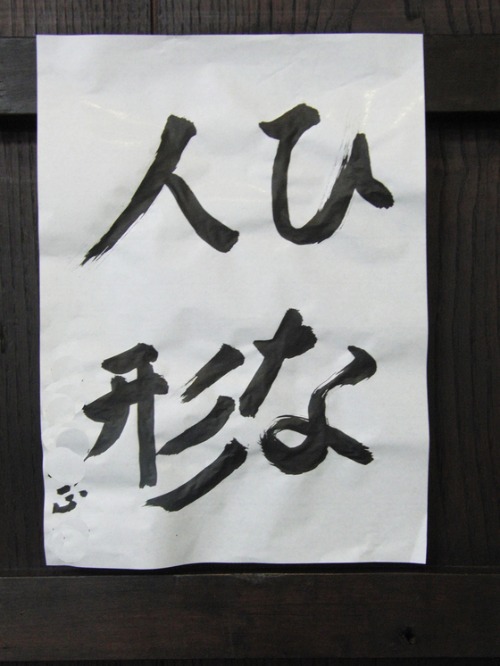 ひな
人形